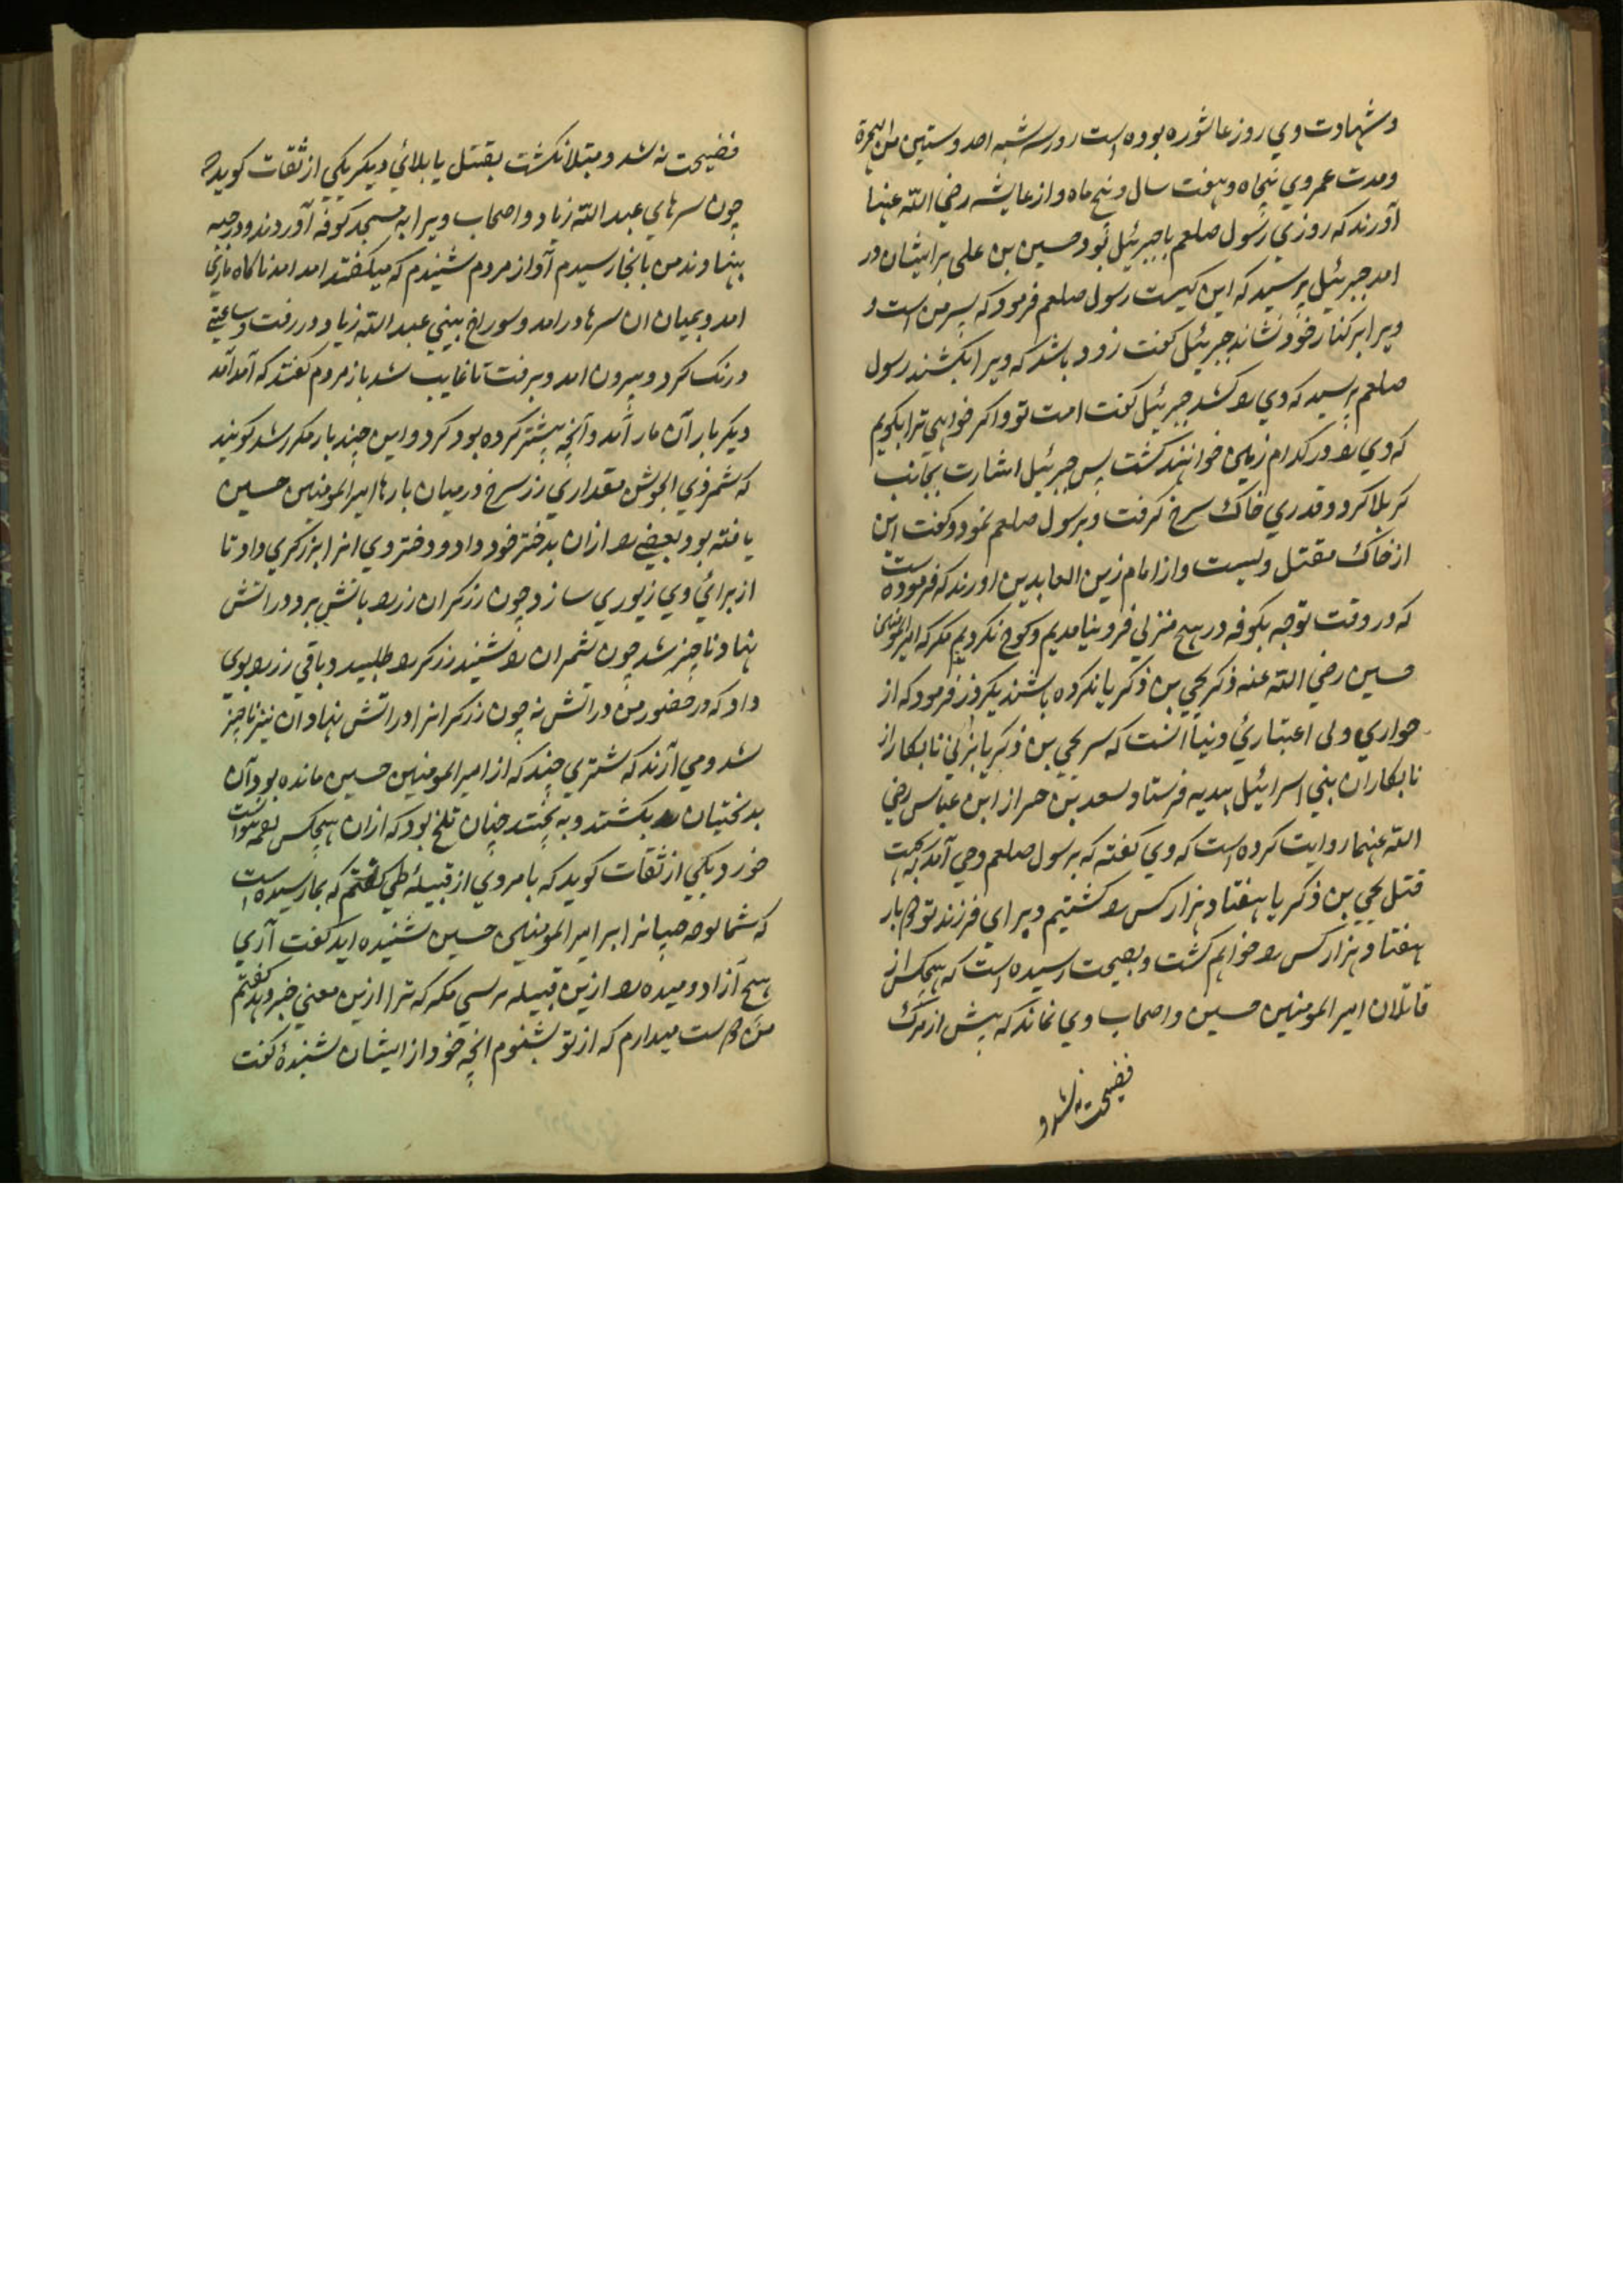 وشهادت وي روز عاشوره بوده است روز سه شنبه احد وستين من الهجرة
ومدت عمر وي پنجاه وهفت سال و پنج ماه و از عايشه رضي الله عنها
آورند که روزي رسول صلعم با جبرئيل بود حسين بن علي بر ايشان در
امد جبرئيل پرسيد که اين کيست رسول صلعم فرمود که پسر من است و
ويرا بر کنار خود نشاند جبرئيل کفت زود باشد که ويرا بکشند رسول
صلعم پرسيد که وي را کشد جبرئيل کفت امت تو و اکر خواهي ترا بکويم
که وي را در کدام زمين خواهند کشت پس جبرئيل اشارت بجانب
کربلا کرد و قدري خاک سرخ کرفت و برسول صلعم نمود وکفت اين
از خاک مقتل ويست و از امام زين العابدين اورند که فرموده است
که در وقت توجه بکوفه در هيچ منزلي فرو نيامديم و کوچ نکرديم مکر که امير المومنين
حسين رضي الله عنه ذکر يحيي بن ذکريا نکرده باشند يکروز فرمود که از
خواري و بي اعتبارئ دنيا انست که سر يحيي بن ذکريا بزني نابکار از
نابکاران بني اسرائيل بهديه فرستاد وسعد بن حر از ابن عباس رضي
الله عنهما روايت کرده است که وي کفته که برسول صلعم وحي آمد که بجهت
قتل يحيي بن ذکريا هفتاد هزار کس را کشتيم و براي فرزند تو دو بار
هفتاد هزار کس را خواهم کشت و بصحت رسيده است که هيچکس از
قاتلان امير المومنين حسين و اصحاب وي نماند که پيش از مرک
فضيحت نه شد و
فضيحت نه شد و مبتلا نکشت بقتل يا بلائي ديکر يکي از ثقات کويد که
چون سرهاي عبد الله زياد و اصحاب ويرا به مسجد کوفه آوردند و در رحبه
بنهاوند من بانجا رسيدم آواز مردم شنيدم که ميکفتند امد امد ناکاه ماري
امد و بميان ان سرها در امد و سوراخ بيني عبد الله زياد در رفت و ساعتي
درنک کرد و بيرون امد و برفت تا غايب شد باز مردم کفتند که آمد آمد
ديکر بار آن مار آمد و آنچه پيشتر کرده بود کرد و اين چند بار مکرر شد کويند
که شمر ذي الجوشن مقداري زر سرخ در ميان بارها امير المومنين حسين
يافته بود بعضي را ازان بدختر خود داد و دختر وي انرا بزرکري داد تا
از برائي وي زيوري سازد چون زرکر ان زر را باتش برد در اتش
نهاد ناچيز شد چون شمر ان را شنيد زرکر را طلبيد و باقي زر را بوي
داد که در حضور من در اتش نه چون زرکر انرا در اتش نهاد ان نيز ناچيز
شد و مي آرند که شتري چند که از امير المومنين حسين مانده بود آن
بدبختيان را بکشتند و به پختند چنان تلخ بود که ازان هيچکس لقمه نتوانست
خورد يکي از ثقات کويد که با مردي از قبيلهٔ طي کفتم که بما رسيده است
که شما نوحه جنيانرا بر امير المومنين حسين شنيده ايد کفت آري
هيچ آزاد و بنده را ازين قبيله نپرسي مکر که ترا ازين معني خبر دهد کفتم
من دوست ميدارم که از تو بشنوم انچه خود از ايشان شنيدهٔ کفت